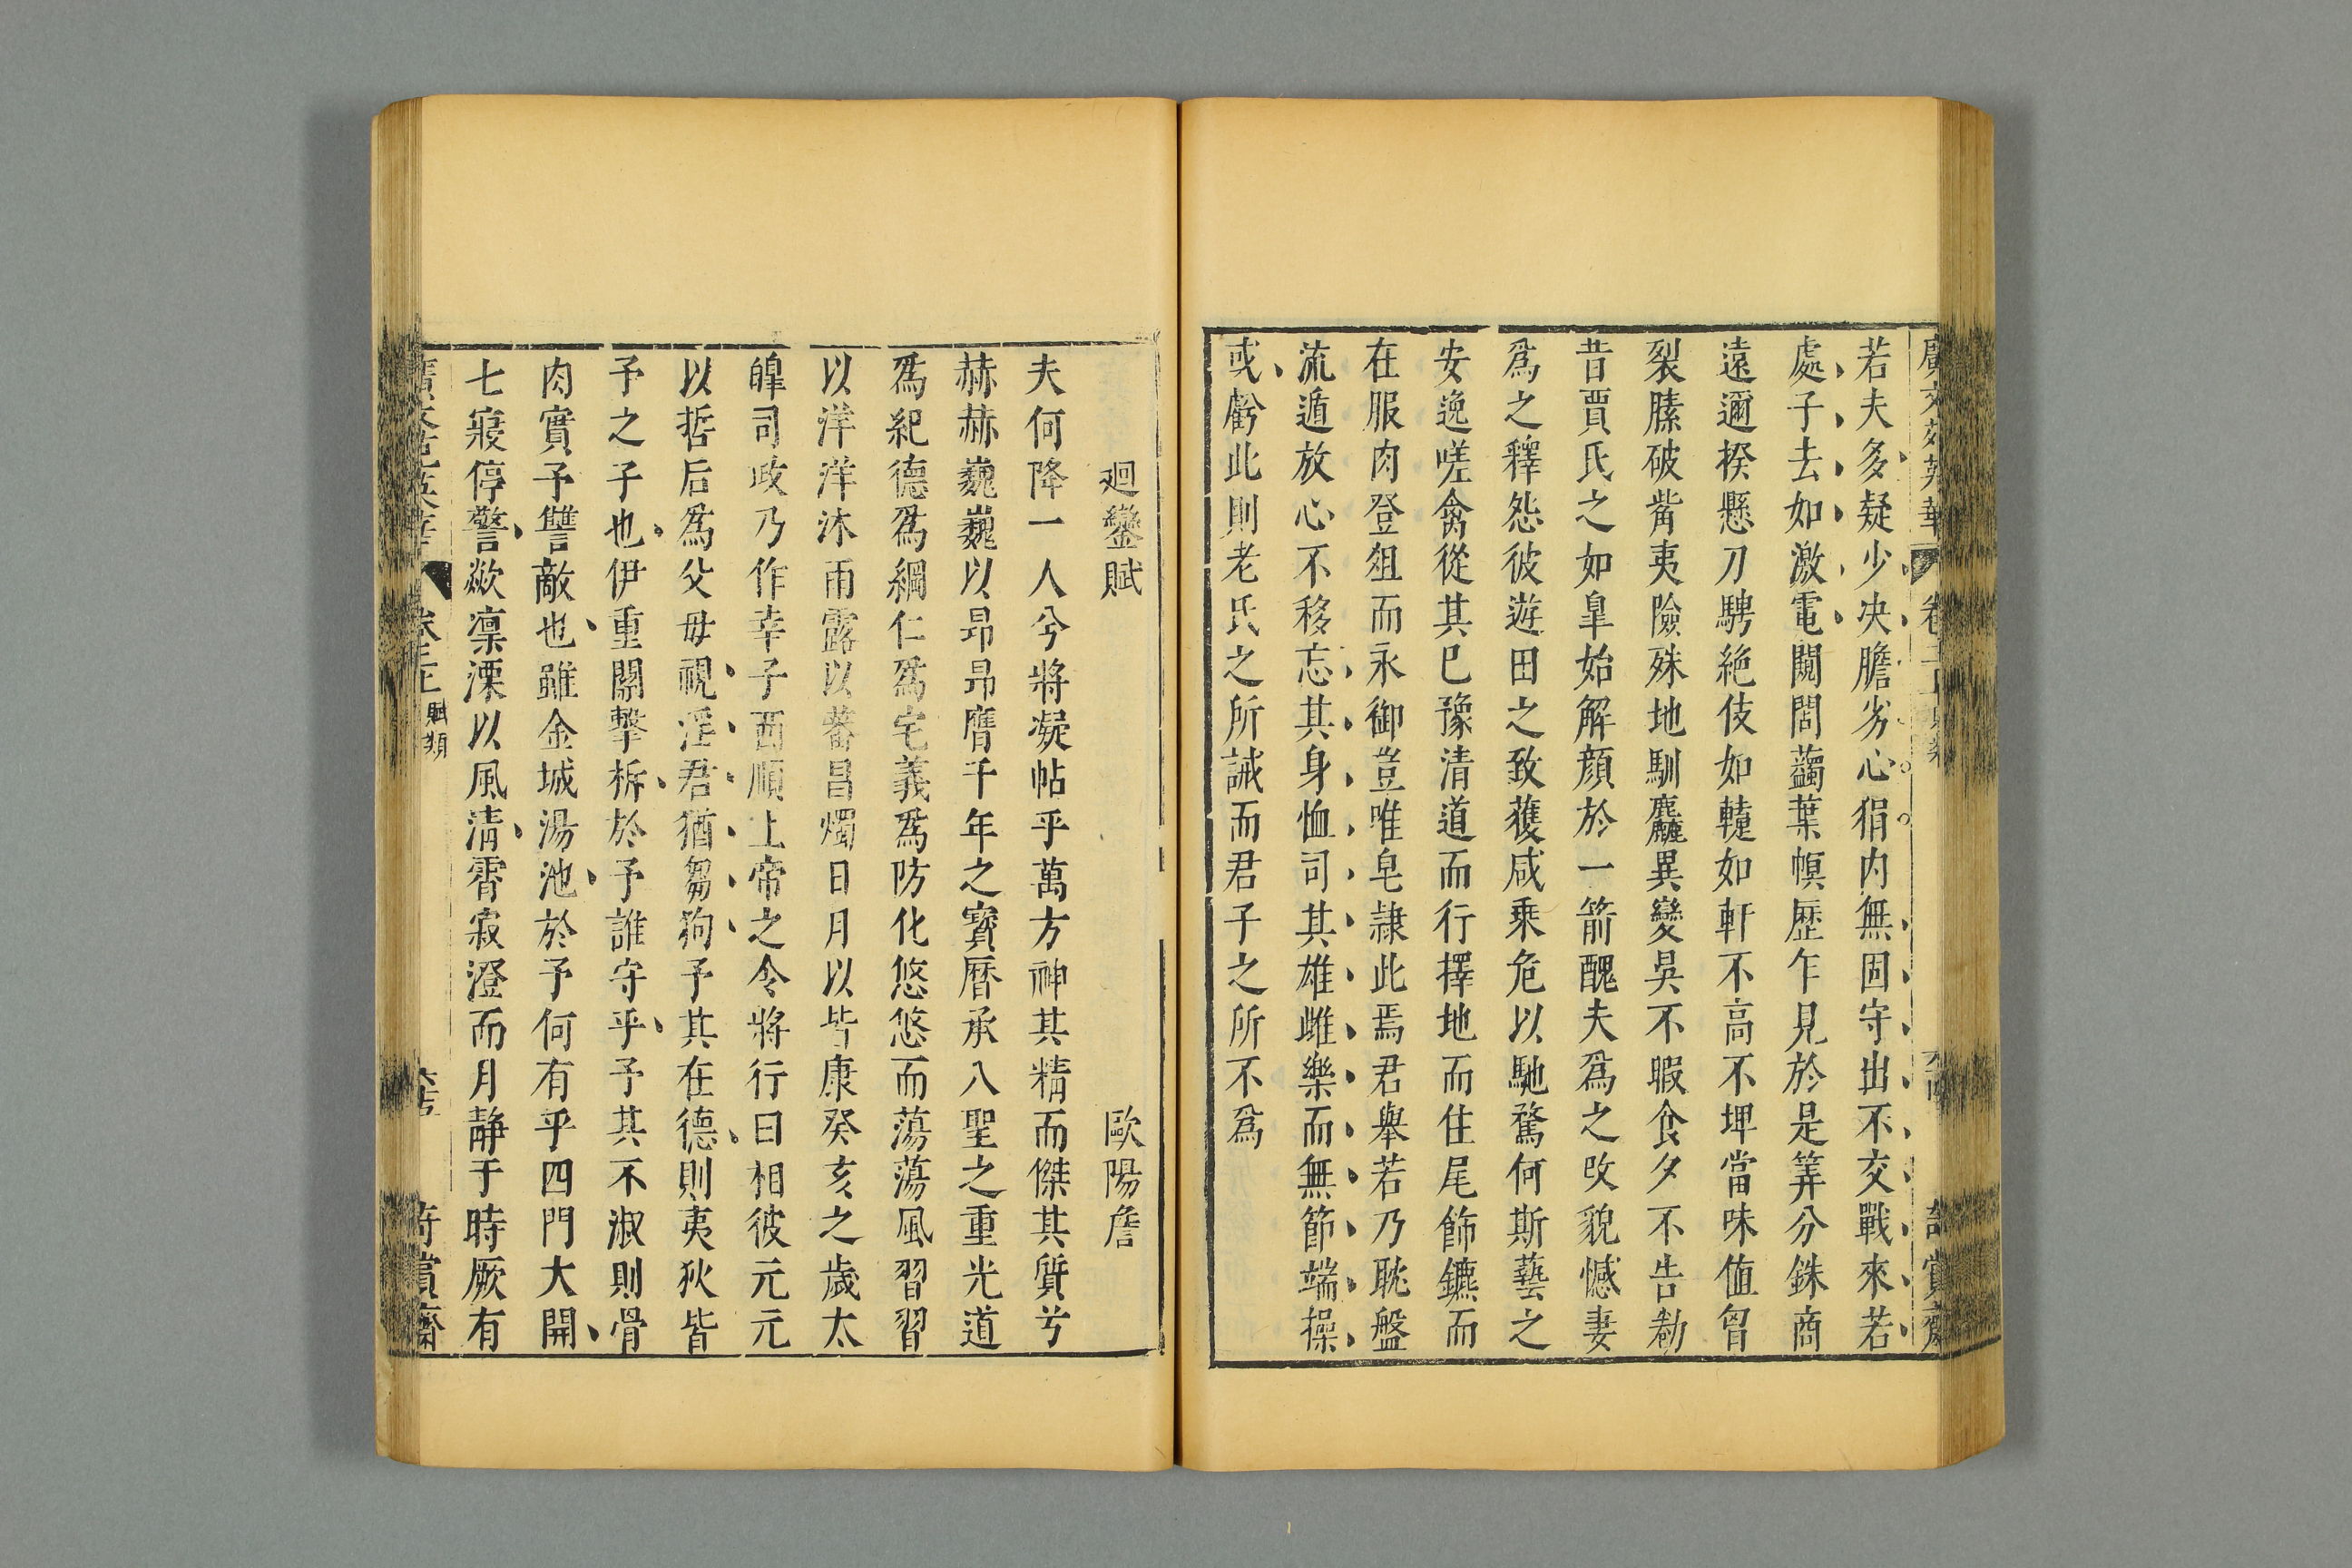 若夫多疑少决膽劣心狷内無固守出不交戰來若
處子去如激電闚閻蘜葉幙歷乍見於是筭分銖商
遠邇揆懸刀騁絶伎如轋如軒不高不埤當味值胷
裂膆破觜夷險殊地馴麤異變昃不暇食夕不告勌
昔賈氏之如臯始解顔於一箭醜夫爲之改貌憾妻
爲之釋怨彼遊田之致獲咸乗危以馳騖何斯藝之
安逸嗟禽從其已豫清道而行擇地而住尾飾鑣而
在服肉登俎而永御豈唯皂隷此焉君舉若乃耽盤
流遁放心不移忘其身恤司其雄雌樂而無節端操
或虧此則老氏之所誡而君子之所不爲
廻鑾賦
歐陽詹
夫何降一人兮將凝帖乎萬方神其精而傑其質兮
赫赫巍巍以昻昻膺千年之寶曆承八聖之重光道
爲紀德爲綱仁爲宅義爲防化悠悠而蕩蕩風習習
以洋洋沐雨露以蕃昌燭日月以皆康癸亥之歲太
皥司政乃作幸子西順上帝之令將行曰相彼元元
以哲后爲父母視淫君猶芻狗予其在德則夷狄皆
予之子也伊重關擊柝於予誰守乎予其不淑則骨
肉實予讐敵也雖金城湯池於予何有乎四門大開
七寢停警歘凛溧以風清霄寂澄而月靜于時厥有
賦類